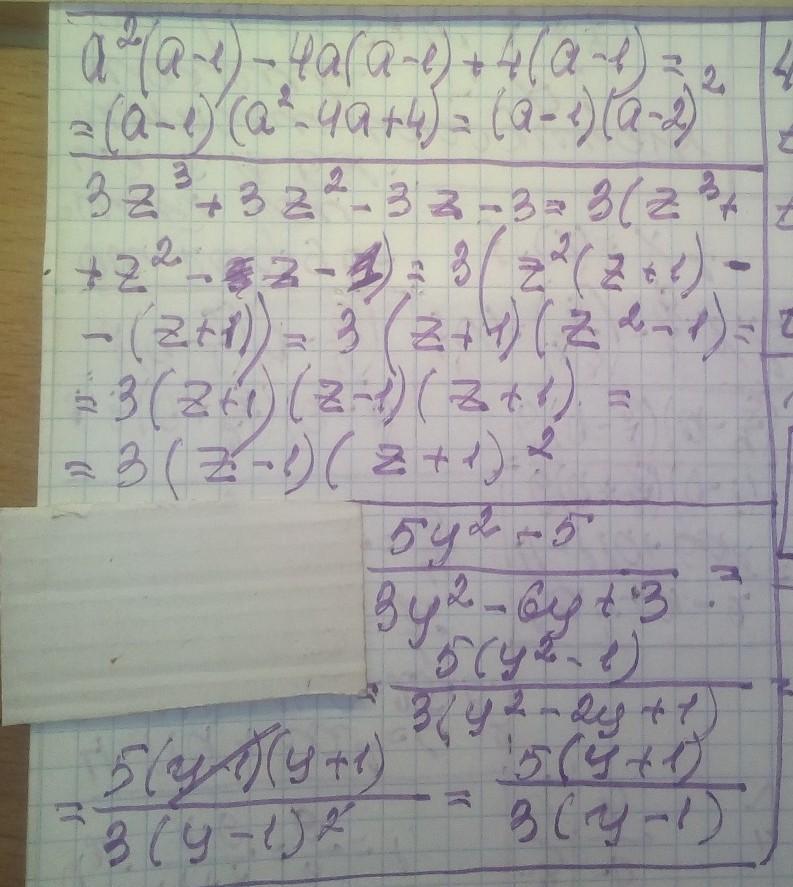 a²(a-1) - 4a(a-1) + 4(a-1) =
= (a-1)(a²-4a+4) = (a-1)(a-2)²
3z³ + 3z² - 3z - 3 = 3(z³+
+z² - z - 1) = 3(z²(z+1) -
- (z+1)) = 3(z+1)(z²-1) =
= 3(z+1)(z-1)(z+1) =
= 3(z-1)(z+1)²
5y² - 5
3y² - 6y + 3 =
= 5(y²-1)
3(y² - 2y + 1)
= 5(y-1)(y+1) = 5(y+1)
3(y-1)² 3(y-1)